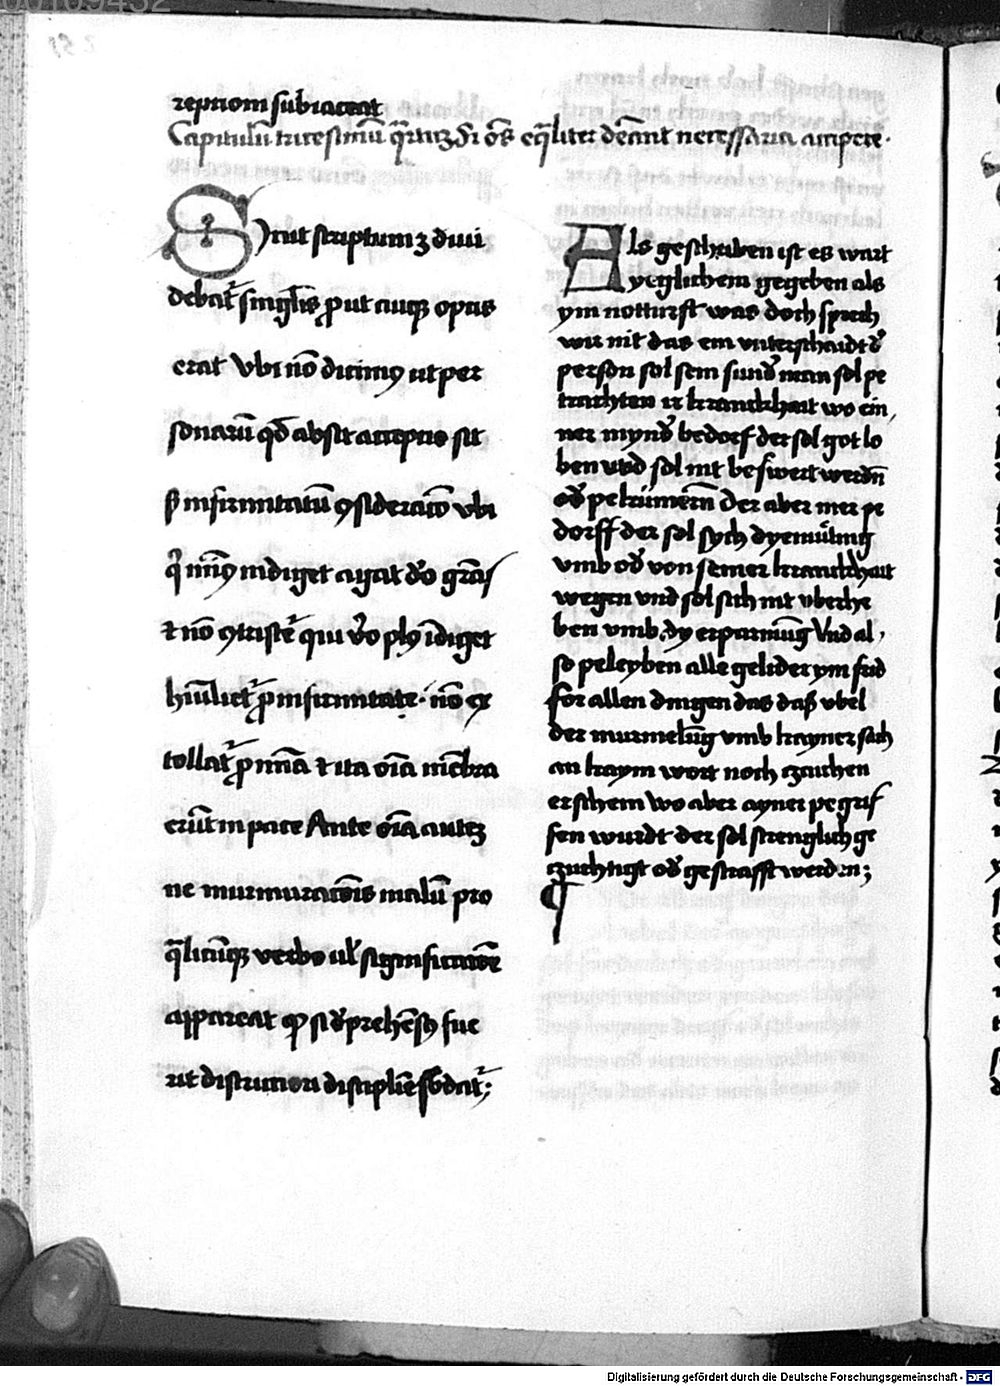 repcioni subiaceat
Capitulū tricesimū qͣrtuꝫ Si oēs eqͣliter debeāt necessaria accipere.
Sicut scriptum ꝫ diui
debat᷑ singl̄is ꝓut cuiqꝫ opus
erat Vbi nō dicimꝰ ut per
sonarū qd̄ absit accepcio sit
ꝫ infirmitatū ꝯsideracō vbi
qͥ minꝰ indiget agat deo grās
et nō ꝯtristet᷑ qui v̄o plꝰ īdiget
humiliet᷑ ꝓ infirmitate. nō ex
tollat᷑ ꝓ mīa et ita oīa mēbra
erūt in pace Ante oīa auteꝫ
ne murmuracōis malū pro
qͣlicūqꝫ verbo ul᷑ significacōe
appareat qd̄ si dep̱rehēsꝰ fue
rit districtiori discipline subdat᷑;
Als geschriben ist es wart
yeglichem gegeben als
ym notturft was doch sprech
wir nit das ein vnterschaidt d᷑
person sol sein sund᷑ man sol pe
trachten ir kranckhait wo ein,
ner mynd᷑ bedorf der sol got lo
ben vnd sol nit beswert werdn̄
od᷑ pekümern̄ Der aber mer pe
dorff der sol sych dyemütig
vmb od᷑ von seiner kranckhait
wegen vnd sol sich nit vberhe
ben vmb dy erparmūg Vnd al,
so peleyben alle gelider ym frid
for allen dingen das daß vbel
der murmelūg vmb kayner sach
an kaym wort noch zaichen
erschein wo aber ayner pegrif
fen wurdt der sol strenglich ge
zuchtigt od᷑ gestrafft werden;
¶
Digitalisierung gefördert durch die Deutsche Forschungsgemeinschaft - DFG